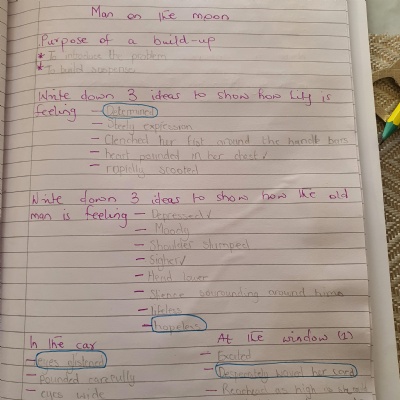 Man on the moon
Purpose of a build-up
* To introduce the problem
* To build suspense
Write down 3 ideas to show how Lily is
feeling - Determined
- Steely expression
- Clenched her fist around the handle bars
- heart pounded in her chest ✓
- rapidly scooted
Write down 3 ideas to show how the old
man is feeling - Depressed ✓
- Moody
- Shoulders slumped
- Sighed ✓
- Head lower
- Silence surrounding around
- lifeless
- hopeless
In the car
- eyes glistened
- Pounded carefully
eyes wide
At the window (1)
- Excited
- Desperately waved her card
- Reached as high as she